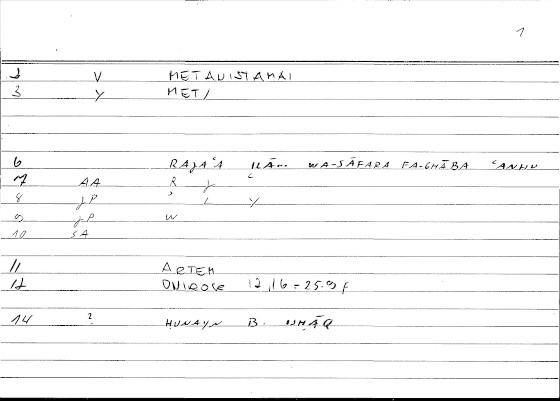 1
2 V METAUISTAMAI
3 Y MET/
6 RAJA‘A ILĀ... WA-SĀFARA FA-GHĀBA ‘ANHU
7 AA R J ‘
8 JP ’ L Y
9 JP W
10 SA
11 ARTEM
12 ONIROCR 12,16 = 25.9 F
14 ? HUNAYN B. ISHĀQ